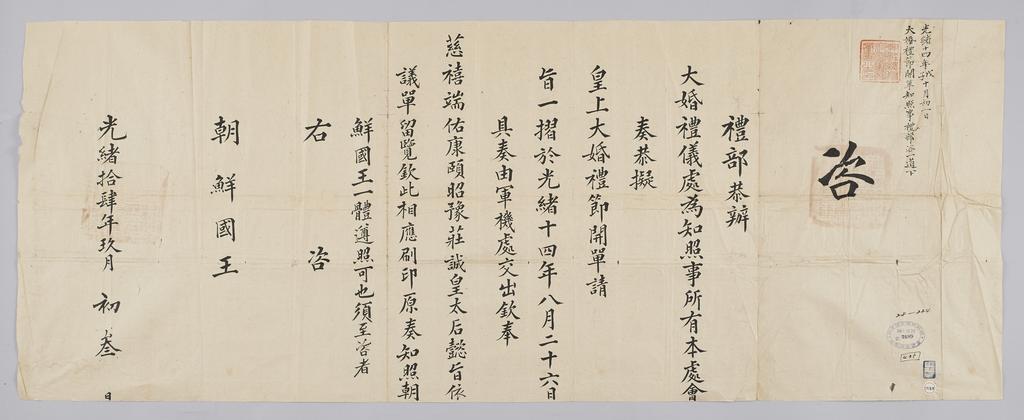 光緒十四年戊子十月初一日
大婚禮節開單知照事禮部咨一道下
咨
禮部恭辦
大婚禮儀處為知照事所有本處會
奏恭擬
皇上大婚禮節開單請
旨一摺於光緒十四年八月二十六日
具奏由軍機處交出欽奉
慈禧端佑康頤昭豫莊誠皇太后懿旨依
議單留覽欽此相應刷印原奏知照朝
鮮國王一體遵照可也須至咨者
右咨
朝鮮國王
光緒拾肆年玖月初叁日